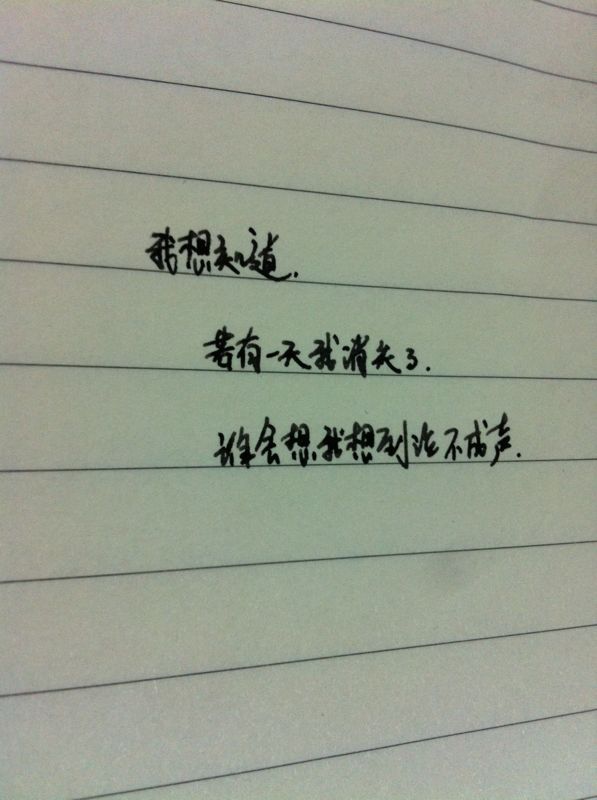 我想知道.
若有一天我消失了.
谁会想我想到泣不成声.